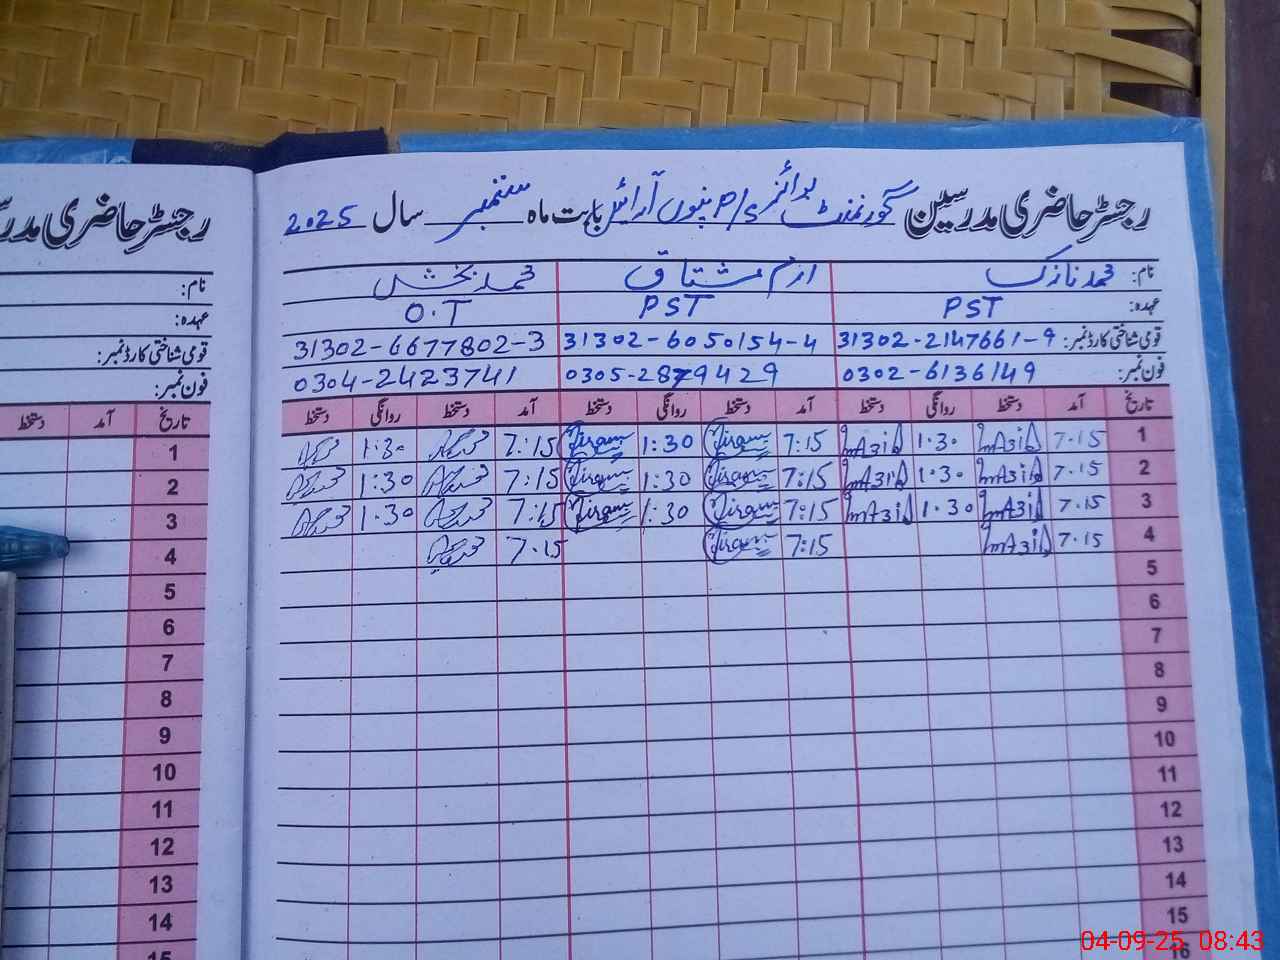 رجسٹر حاضری مدرسین گورنمنٹ بوائز P/S بابت ماہ ستمبر سال 2025
نام: محمد نازک ارم مشتاق محمد بخش
عہدہ: PST PST O.T
قومی شناختی کارڈ نمبر: 31302-2147661-9 31302-6050154-4 31302-6677802-3
فون نمبر: 0302-6136149 0305-2879429 0304-2423741
تاریخ آمد دستخط روانگی دستخط آمد دستخط روانگی دستخط آمد دستخط روانگی دستخط
1 7.15 1.30 7:15 1:30 7:15 1:30
2 7.15 1.30 7:15 1:30 7:15 1:30
3 7.15 1.30 7:15 1:30 7:15 1:30
4 7.15 7:15 7.15
5
6
7
8
9
10
11
12
13
14
15
16
رجسٹر حاضری
نام:
عہدہ:
قومی شناختی کارڈ نمبر:
فون نمبر:
تاریخ آمد دستخط
1
2
3
4
5
6
7
8
9
10
11
12
13
14
15
04-09-25 08:43